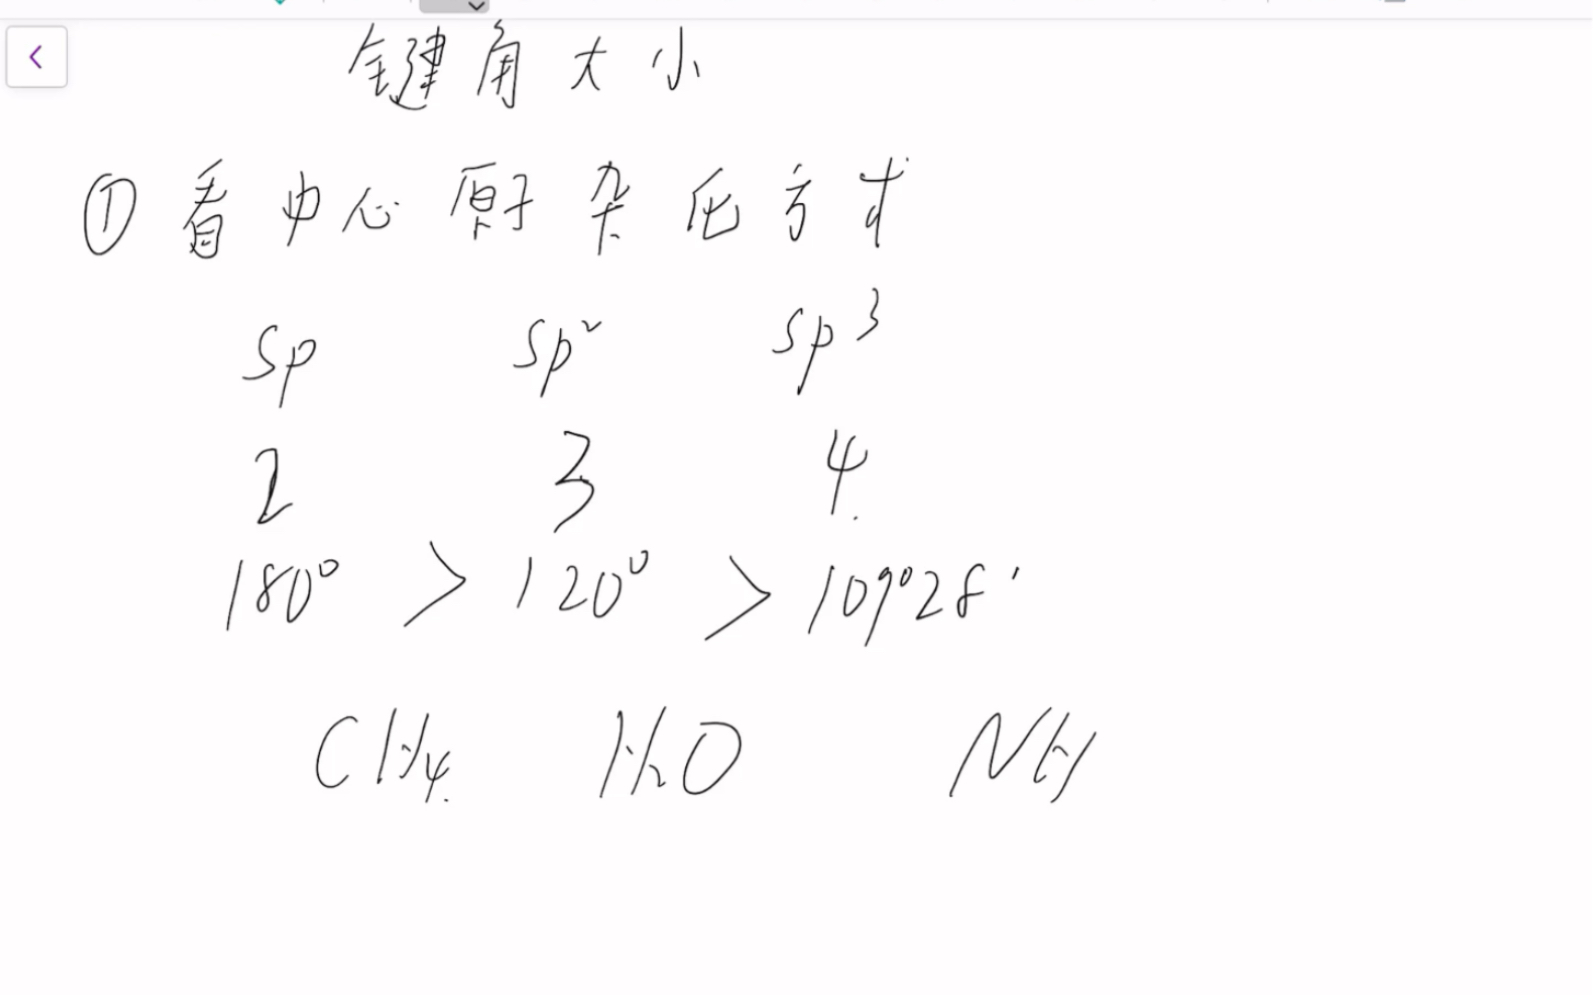 键角大小
① 看中心原子杂化方式
sp sp² sp³
2 3 4
180° > 120° > 109°28'
CH₄ H₂O NH